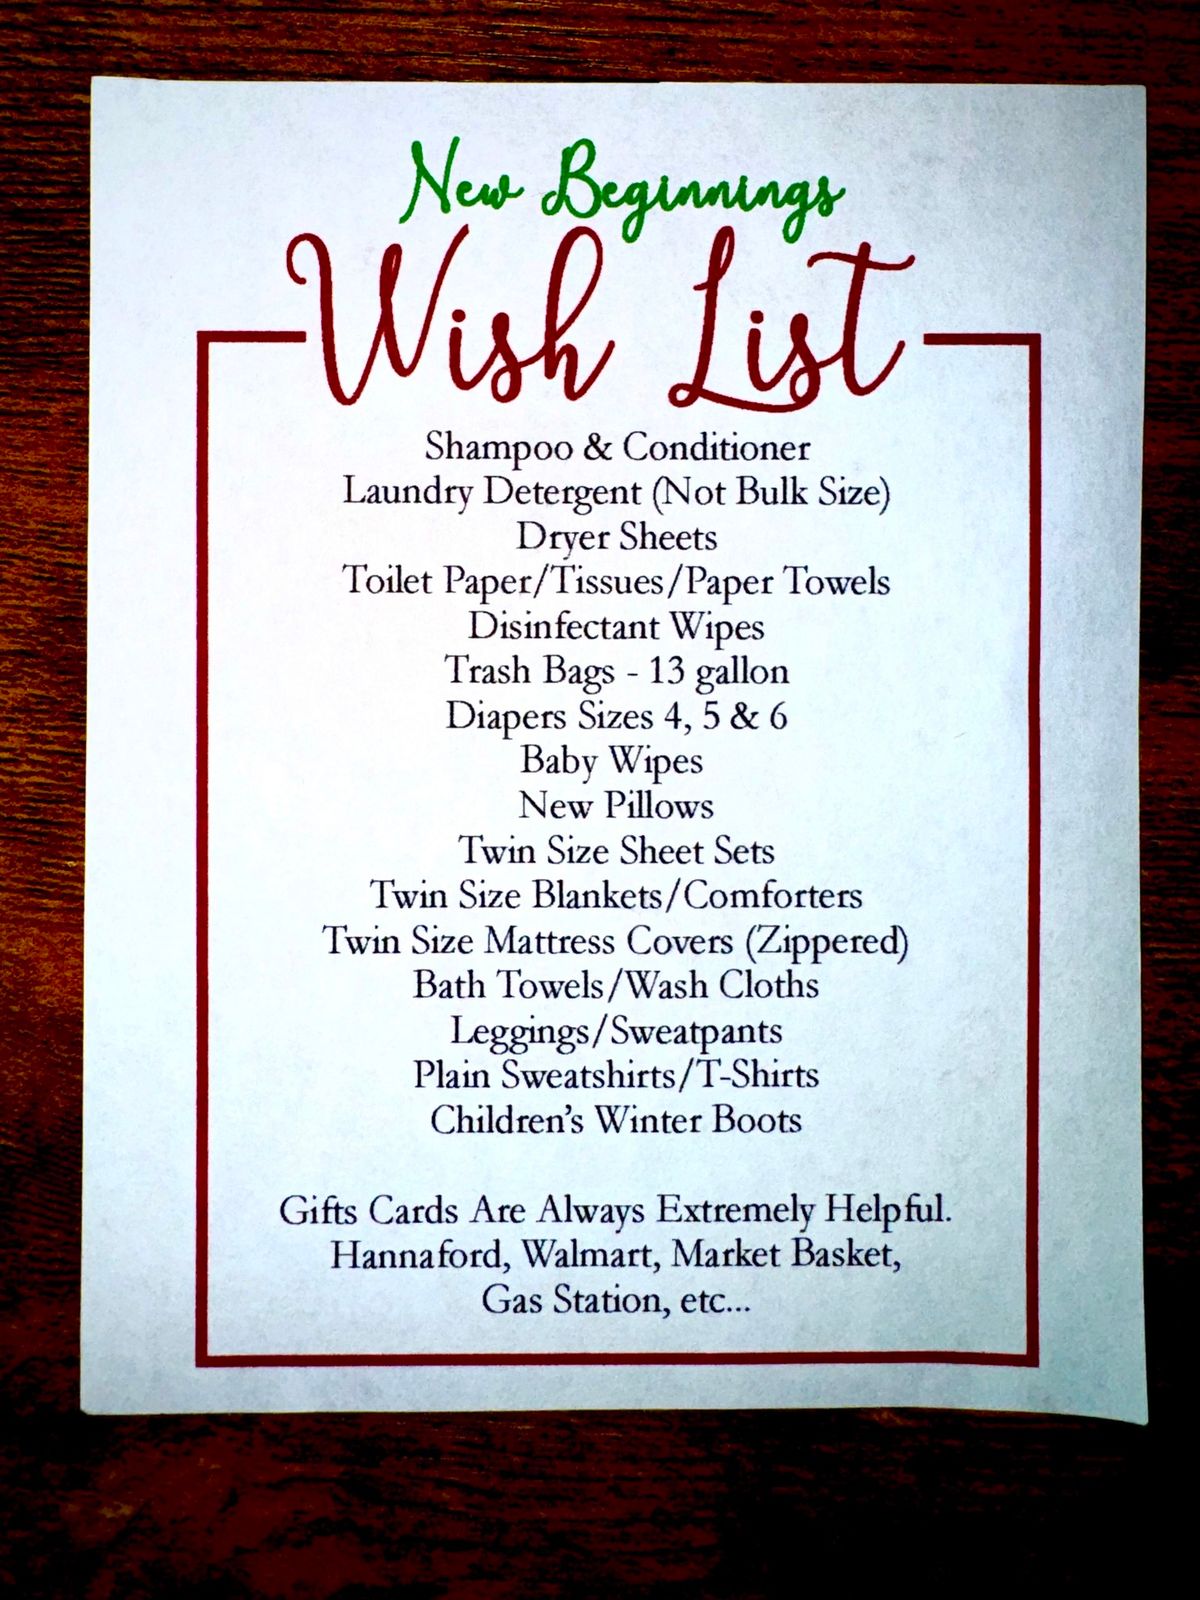 New Beginnings
Wish List
Shampoo & Conditioner
Laundry Detergent (Not Bulk Size)
Dryer Sheets
Toilet Paper/Tissues/Paper Towels
Disinfectant Wipes
Trash Bags - 13 gallon
Diapers Sizes 4, 5 & 6
Baby Wipes
New Pillows
Twin Size Sheet Sets
Twin Size Blankets/Comforters
Twin Size Mattress Covers (Zippered)
Bath Towels/Wash Cloths
Leggings/Sweatpants
Plain Sweatshirts/T-Shirts
Children's Winter Boots
Gifts Cards Are Always Extremely Helpful.
Hannaford, Walmart, Market Basket,
Gas Station, etc...